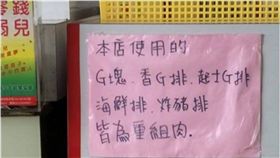 零錢
弱兒
本店使用的
G塊、香G排、起士G排
海鮮排、炸豬排
皆為重組肉.